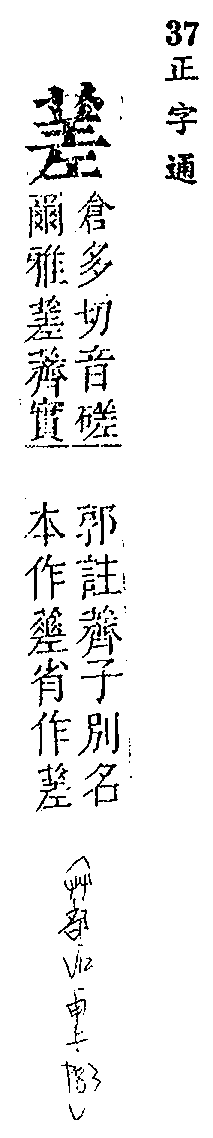 37 正字通
蒫
倉多切音磋
爾雅蒫薺實
郭註薺子別名
本作省作蒫
艸部